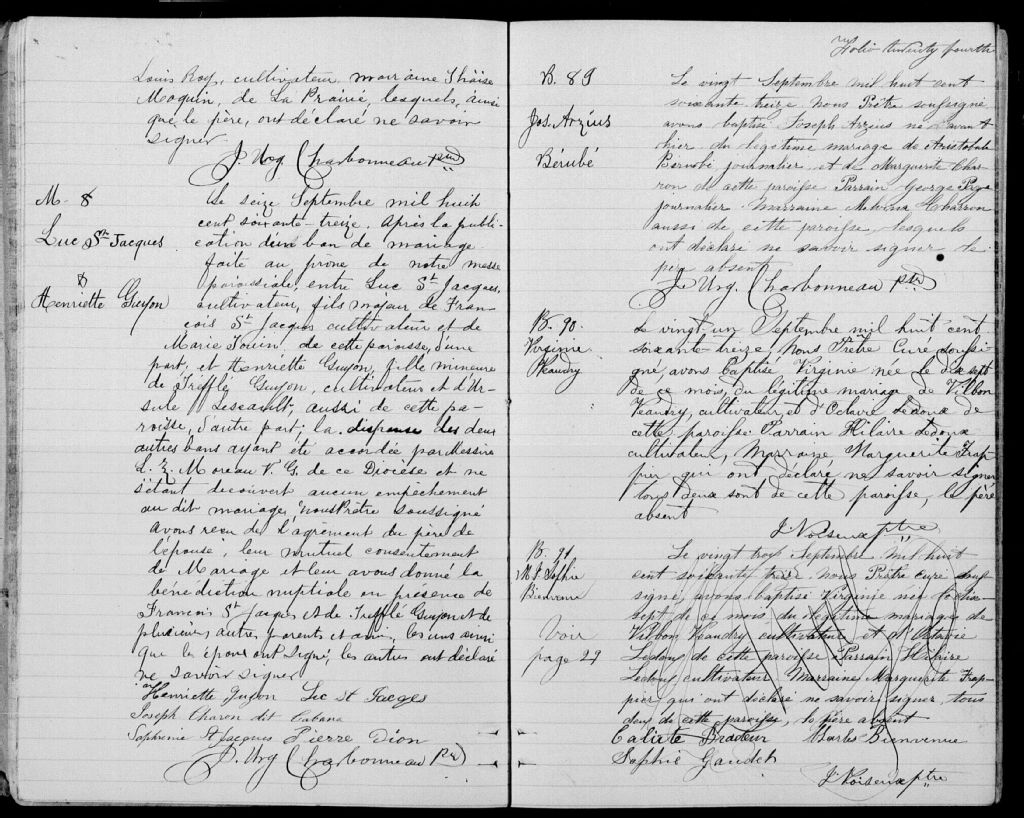 Louis Roy, cultivateur, marraine Thaïse
Moquin, de La Prairie, lesquels, ainsi
que le père, ont déclaré ne savoir
signer.
J. Urg. Charbonneau Ptre
M. 8
Luc St. Jacques
&
Henriette Guyon
Le seize Septembre mil huit
cent soixante-treize, après la publi-
cation d'un ban de mariage
faite au prône de notre messe
paroissiale, entre Luc St. Jacques,
cultivateur, fils majeur de Fran-
çois St. Jacques cultivateur et de
Marie de cette paroisse, d'une
part; et Henriette Guyon, fille mineure
de Trefflé Guyon, cultivateur et d'Ur-
sule Lescault, aussi de cette pa-
roisse, d'autre part; la dispense des deux
autres bans ayant été accordée par Messire
L. Z. Moreau V. G. de ce Diocèse et ne
s'étant découvert aucun empêchement
au dit mariage, nous Prêtre soussigné
avons reçu de l'agrément du père de
l'épouse, leur mutuel consentement
de Mariage et leur avons donné la
bénédiction nuptiale en présence de
François St. Jacques et de Trefflé Guyon et de
plusieurs autres parents et amis, les uns ainsi
que les époux ont signé, les autres ont déclaré
ne savoir signer
Henriette Guyon Luc St Jacques
Joseph Charon dit Cabana
Sophrenie St Jacques Pierre Dion
J. Urg. Charbonneau Ptre
Folio twenty fourth
B. 89
Jos. Arzius
Bérubé
Le vingt Septembre mil huit cent
soixante treize, Nous Prêtre soussigné
avons baptisé Joseph Arzius né avant
hier du légitime mariage de Aristobule
Bérubé journalier, et de Marguerite Char-
ron de cette paroisse Parrain George
journalier Marraine Melvina Charron
aussi de cette paroisse, lesquels
ont déclaré ne savoir signer le
père absent
J. Urg. Charbonneau Ptre
B. 90.
Virginie
Beaudry
Le vingt-un Septembre mil huit cent
soixante-treize, Nous Prêtre Curé soussi-
gné, avons baptisé Virginie née le dix sept
de ce mois, du légitime mariage de Vilbon
Beaudry, cultivateur, et d'Octavie Ledoux de
cette paroisse. Parrain Hilaire Ledoux
cultivateur, Marraine Marguerite Frap-
pier qui ont déclaré ne savoir signer
tous deux sont de cette paroisse, le père
absent
J Noiseux ptre
B. 91
M. J. Sophie
Bienvenue
Voir
page 29
Le vingt trois Septembre mil huit
cent soixante treize nous Prêtre curé sous-
signé, avons baptisé Virginie née le dix-
sept de ce mois du légitime mariage de
Vilbon Beaudry cultivateur et d'Octavie
Ledoux de cette paroisse Parrain Hilaire
Ledoux cultivateur Marraine Marguerite Frap-
pier qui ont déclaré ne savoir signer, tous
deux de cette paroisse, le père absent
Calixte Brodeur Charles Bienvenue
Sophie Gaudet
J Noiseux ptre